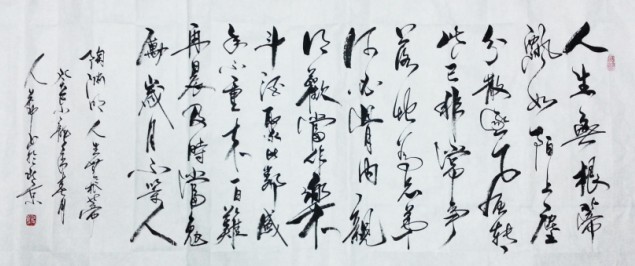 人生無根蒂
飄如陌上塵
分散逐風轉
此已非常身
落地為兄弟
何必骨肉親
得歡當作樂
斗酒聚比鄰盛
年不重來一日難
再晨及時當勉
勵歲月不待人
陶淵明人生無根蒂
書於北京